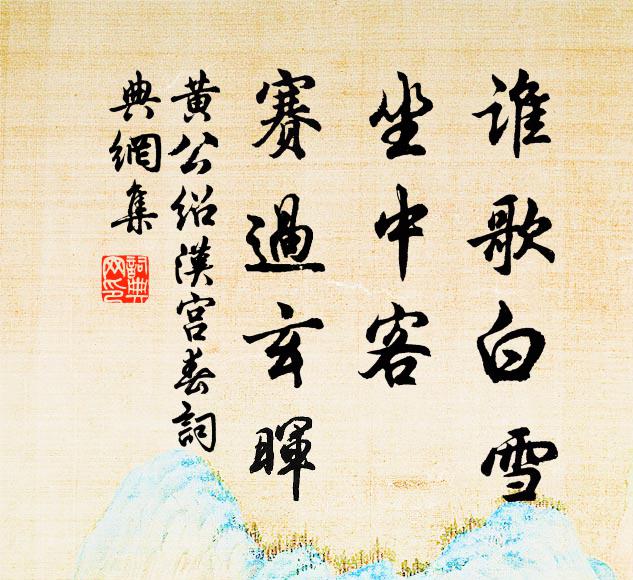 誰歌白雪
坐中客
賽過玄暉
黃公紹漢宮春詞
典網集
詞典網印